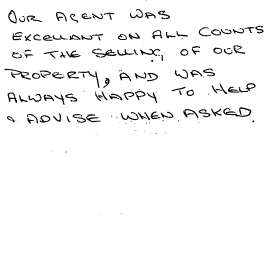 OUR AGENT WAS
EXCELLANT ON ALL COUNTS
OF THE SELLING OF OUR
PROPERTY, AND WAS
ALWAYS HAPPY TO HELP
& ADVISE WHEN ASKED.